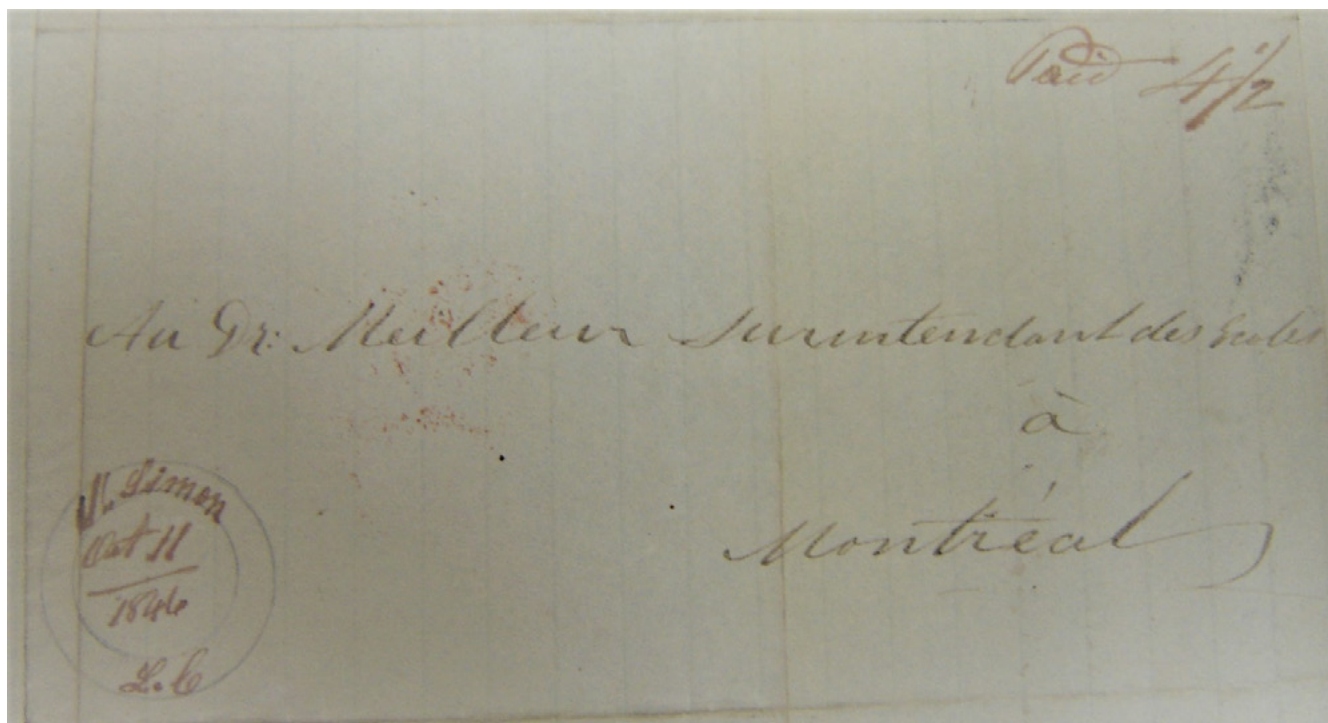 Paid 4 1/2
Au Dr: Meilleur Surintendant des Ecoles
à
Montréal
St. Simon
Oct 11
1846
L.C